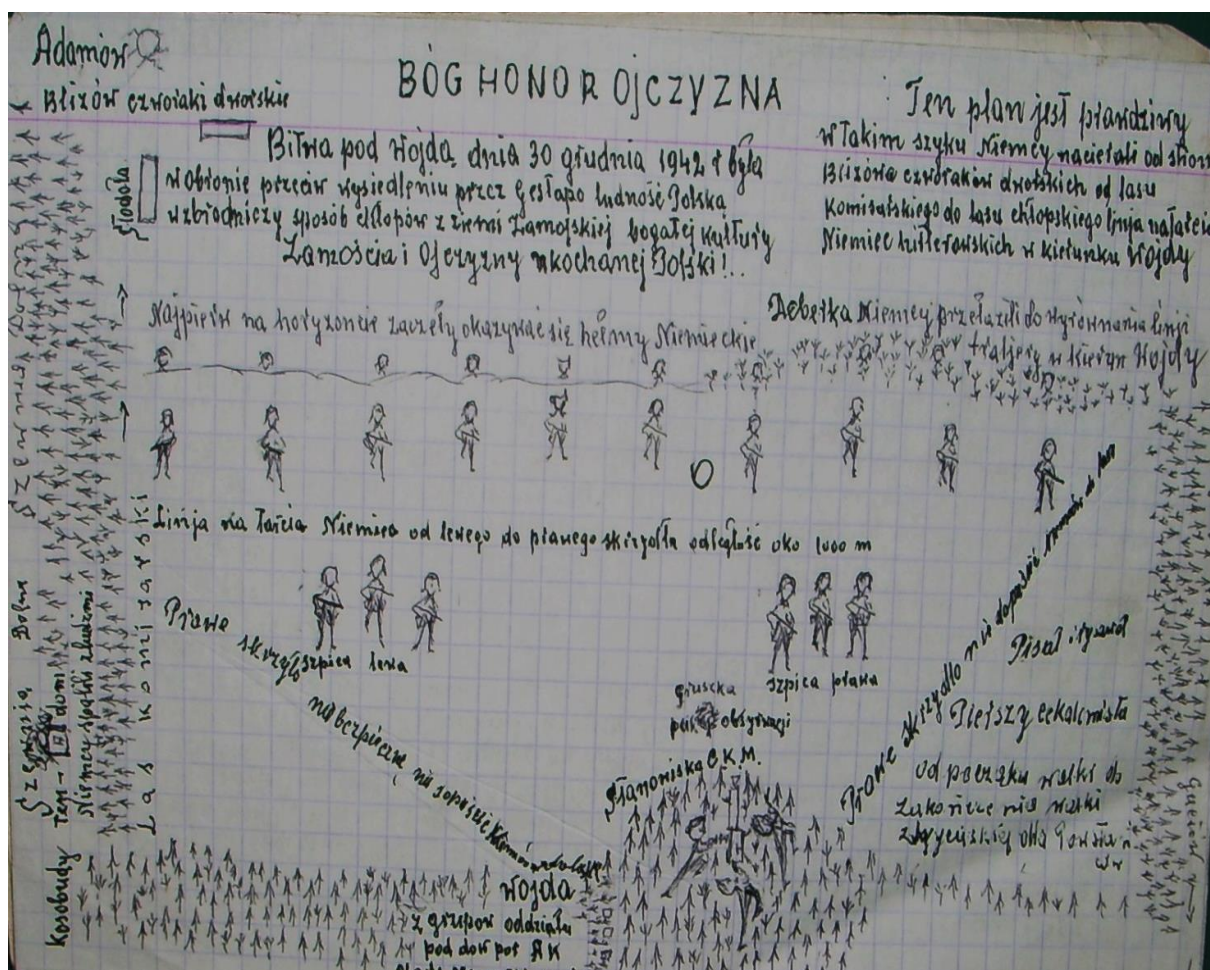 Adamów
Blizów czworaki dworskie
BÓG HONOR OJCZYZNA
Ten plan jest prawdziwy
w takim szyku Niemcy nacierali od stron
Blizowa czworaków dworskich od lasu
Komisarskiego do lasu chłopskiego linja natarcia
Niemiec hitlerowskich w kierunku Wojdy
Bitwa pod Wojdą dnia 30 grudnia 1942 r była
w obronie przeciw wysiedleniu przez Gestapo ludność Polska
w zbrodniczy sposób chłopów z ziemi Zamojskiej bogatej kultury
Zamościa i Ojczyzny ukochanej Polski!..
Stodoła
Najpierw na horyzoncie zaczęły okazywać się hełmy Niemieckie
Debetka Niemcy przełazili do wyrównania linji
traljery w kierun Wojdy
Linja na tarcia Niemiec od lewego do prawego skrzydła odległość oko 1000 m
szpica lewa
szpica prawa
Prawe skrzydło
nabezpieczne nie dopuścić Niemców do lasu
gruszka
punkt obserwacji
Stanowiska C.K.M.
Prawe skrzydło nie dopuścić do las
Pisał i rysował
Pierszy cekaemista
od początku walki do
zakończenia walki
zwycięskiej dla Powstań
ów
Las Komisarski
Szewnia Dolna
Szewnia Dolna
Ten → dom
Niemcy spalili z ludźmi
Kosobudy
Wojda
z grupow oddziału
pod dow por AK